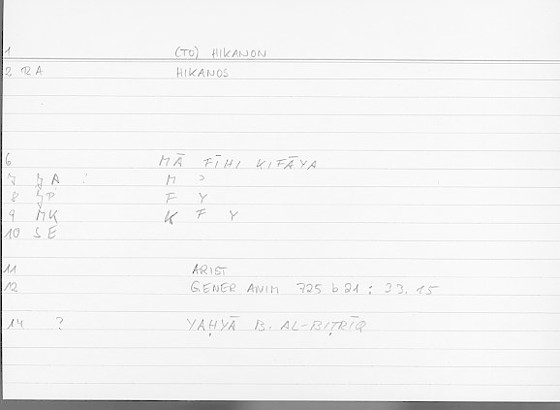 1 (TO) HIKANON
2 RA HIKANOS
6 MĀ FĪHI KIFĀYA
7 ȜA : M ɔ
8 ȜP F Y
9 MK K F Y
10 SE
11 ARIST
12 GENER ANIM 725 b 21 : 33, 15
14 ? YAḤYĀ B. AL-BIṬRĪQ